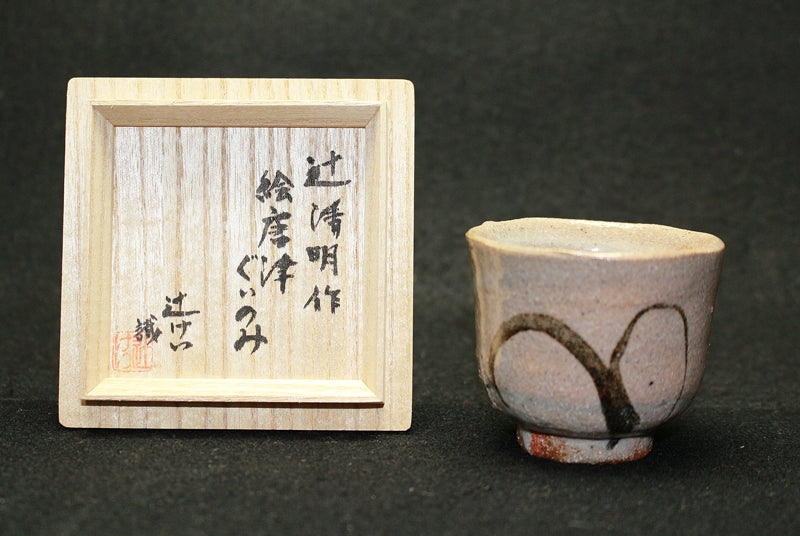 辻清明作
絵唐津
ぐいのみ
辻けい
識